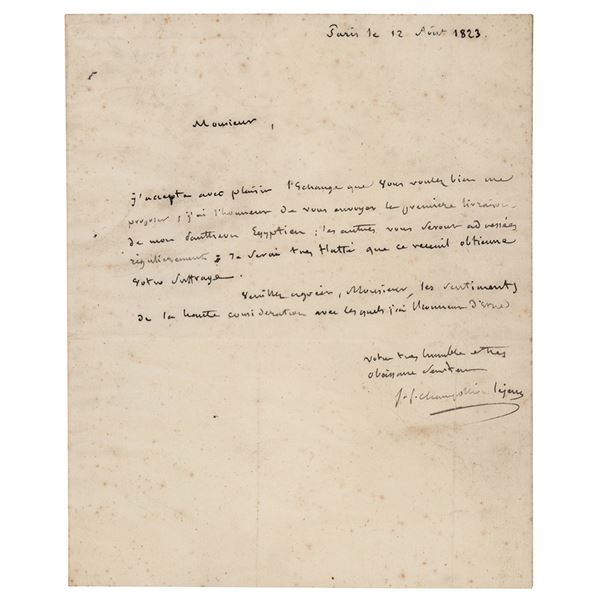 Paris le 12 Août 1823.
Monsieur,
j'accepte avec plaisir l'Echange que vous voulez bien me
proposer; j'ai l'honneur de vous envoyer la première livraison
de mon Panthéon Egyptien; les autres vous seront adressées
régulièrement & je serai très flatté que ce recueil obtienne
votre suffrage.
Veuillez agréer, Monsieur, les sentiments
de la haute considération avec lesquels j'ai l'honneur d'être
votre très humble et très
obéissant serviteur
J. f. champollion lejeune